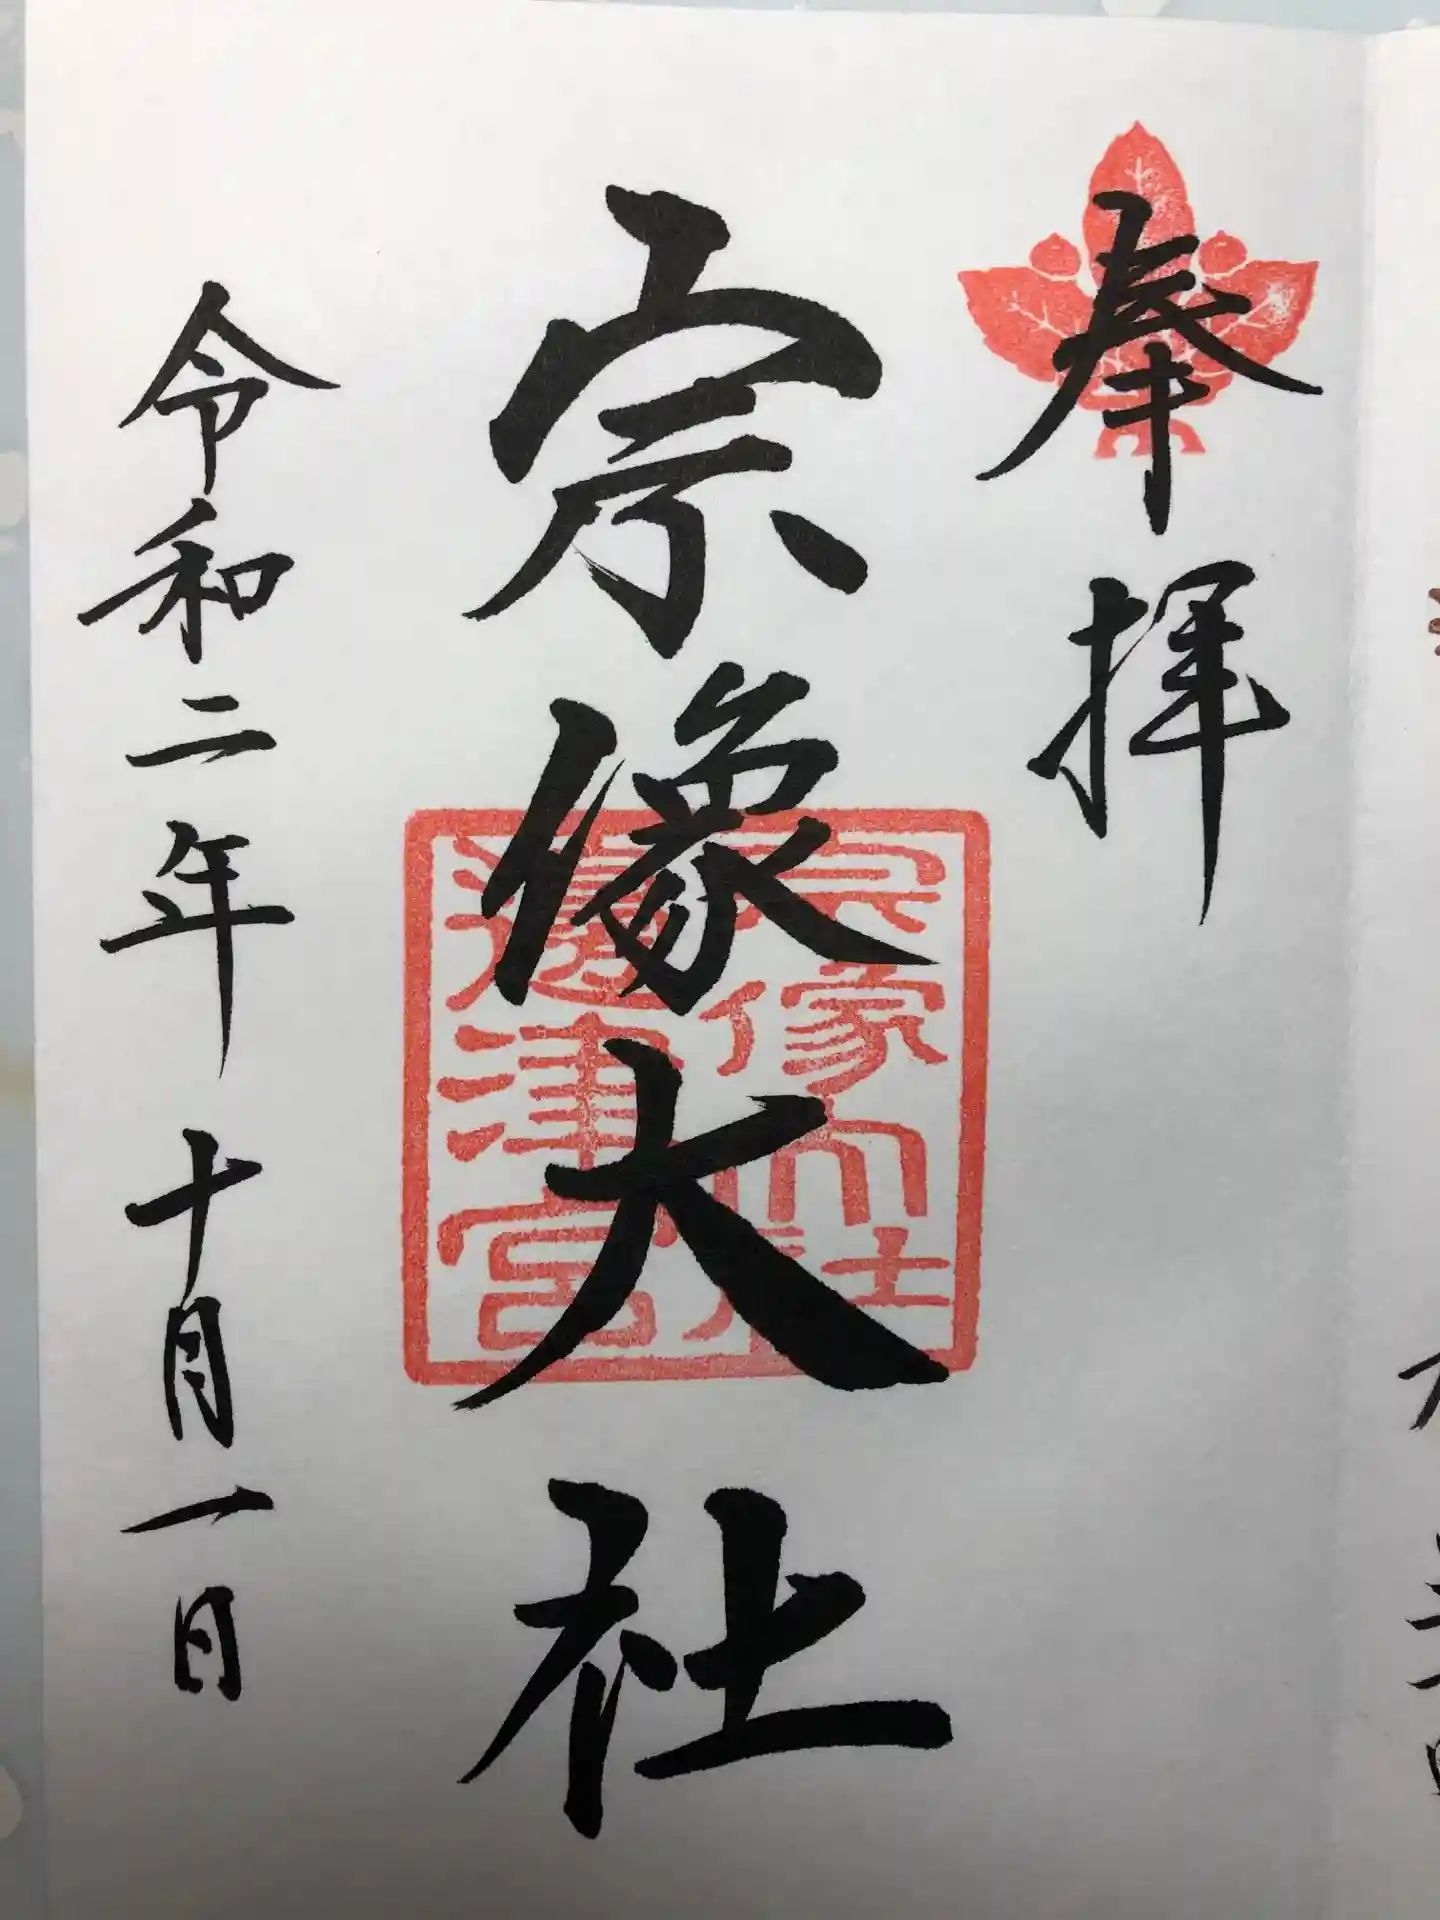 奉拝
宗像大社
宗像大社
邊津宮
令和二年 十月一日